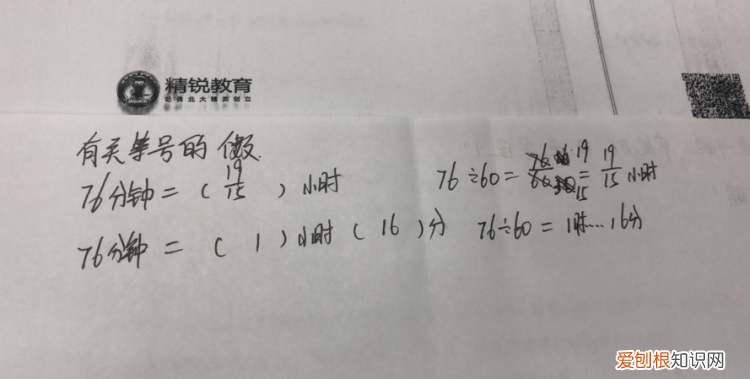 精锐教育
哈佛北大精英创立
有关单号的
76分钟=( 19/15 )小时 76÷60= = 19/15 小时
76分钟=( 1 )小时( 16 )分 76÷60=1时……16分
爱刨根知识网